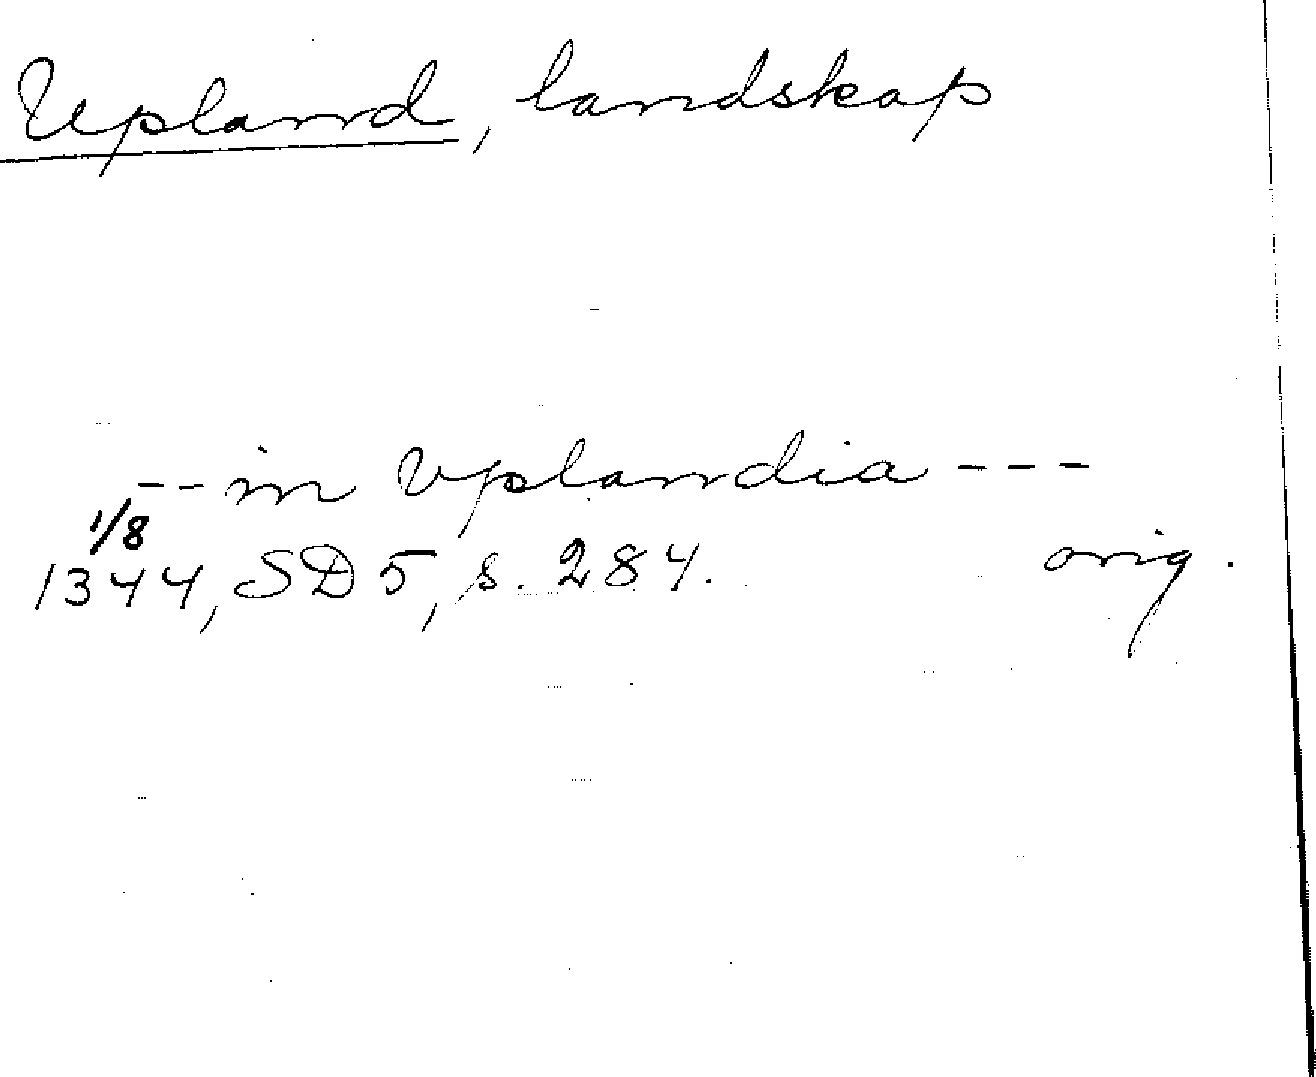 Upland, landskap
-- in Vplandia ---
1/8
1344, SD 5, s. 284. orig.